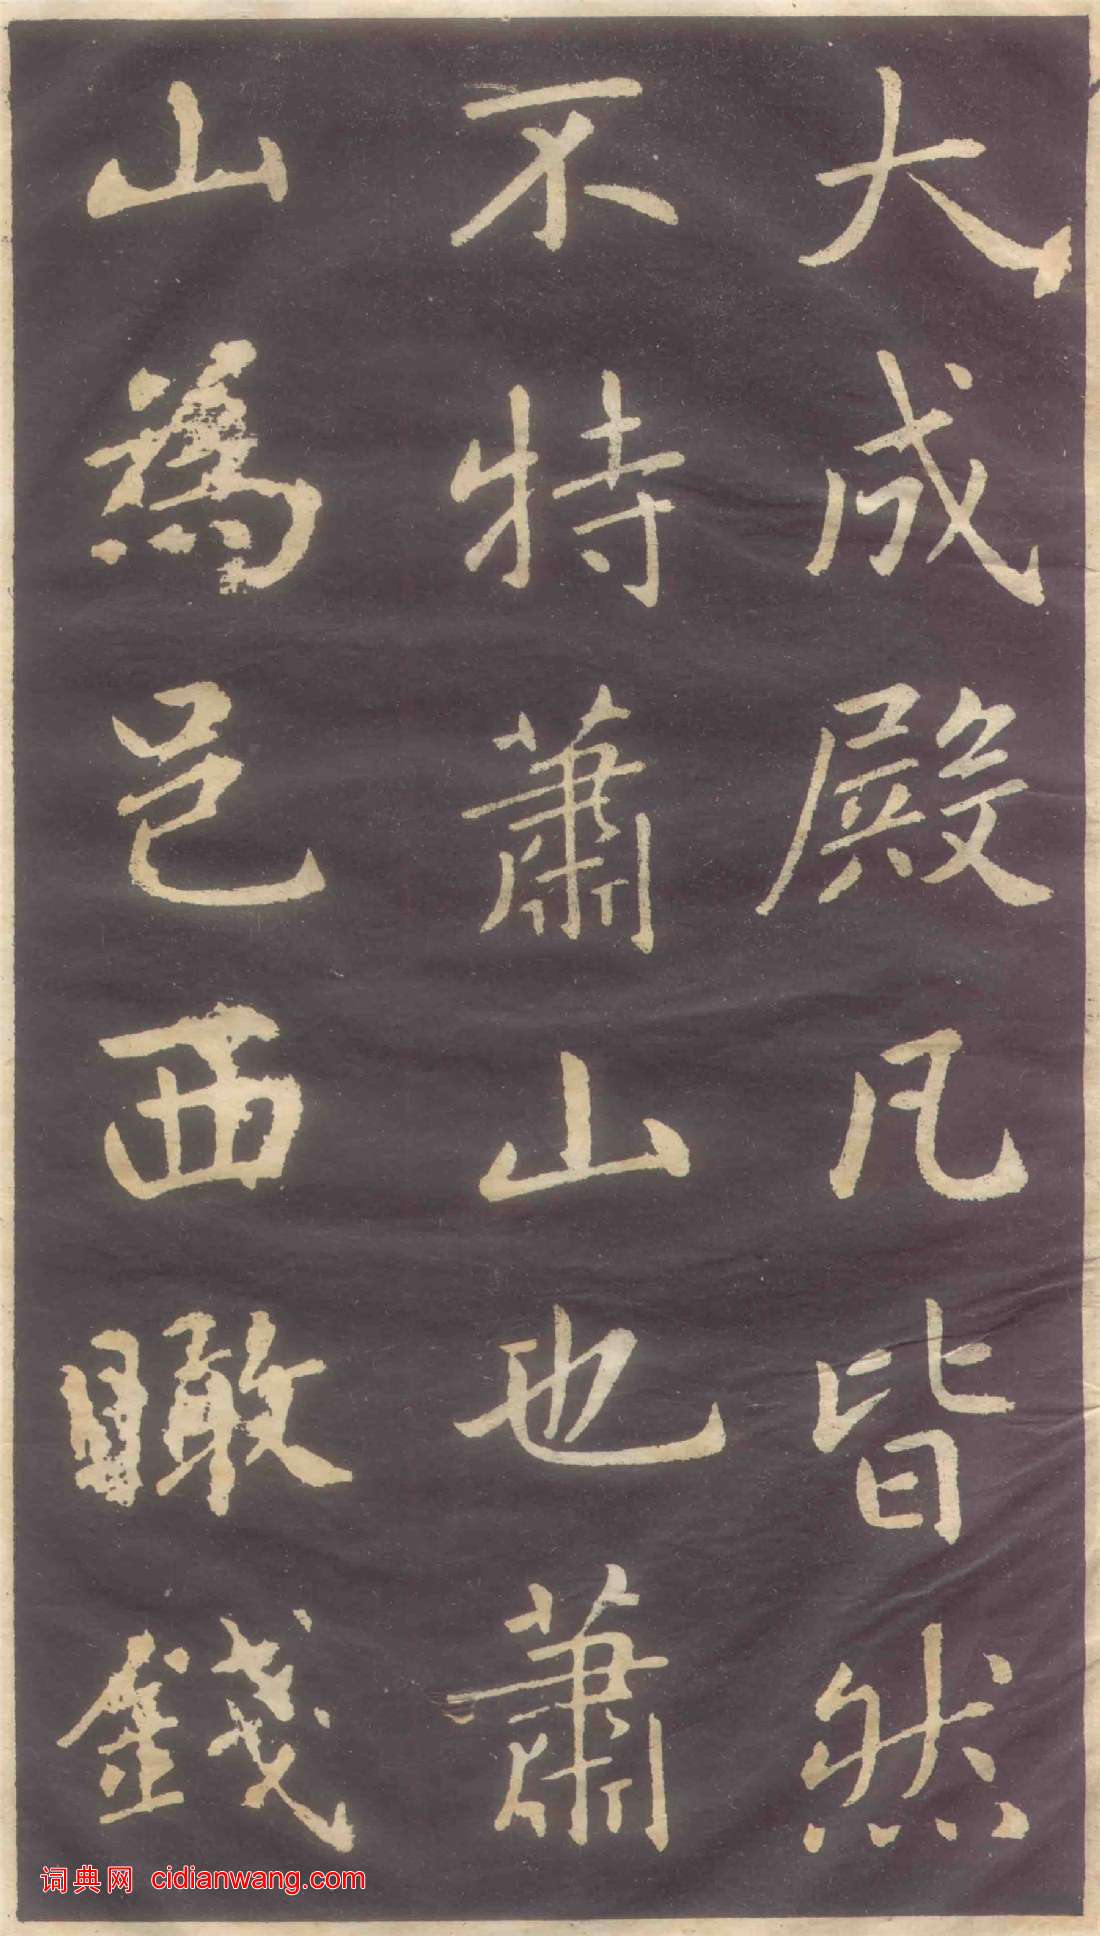 大成殿凡皆然
不特蕭山也蕭
山為邑西瞰錢
词典网 cidianwang.com